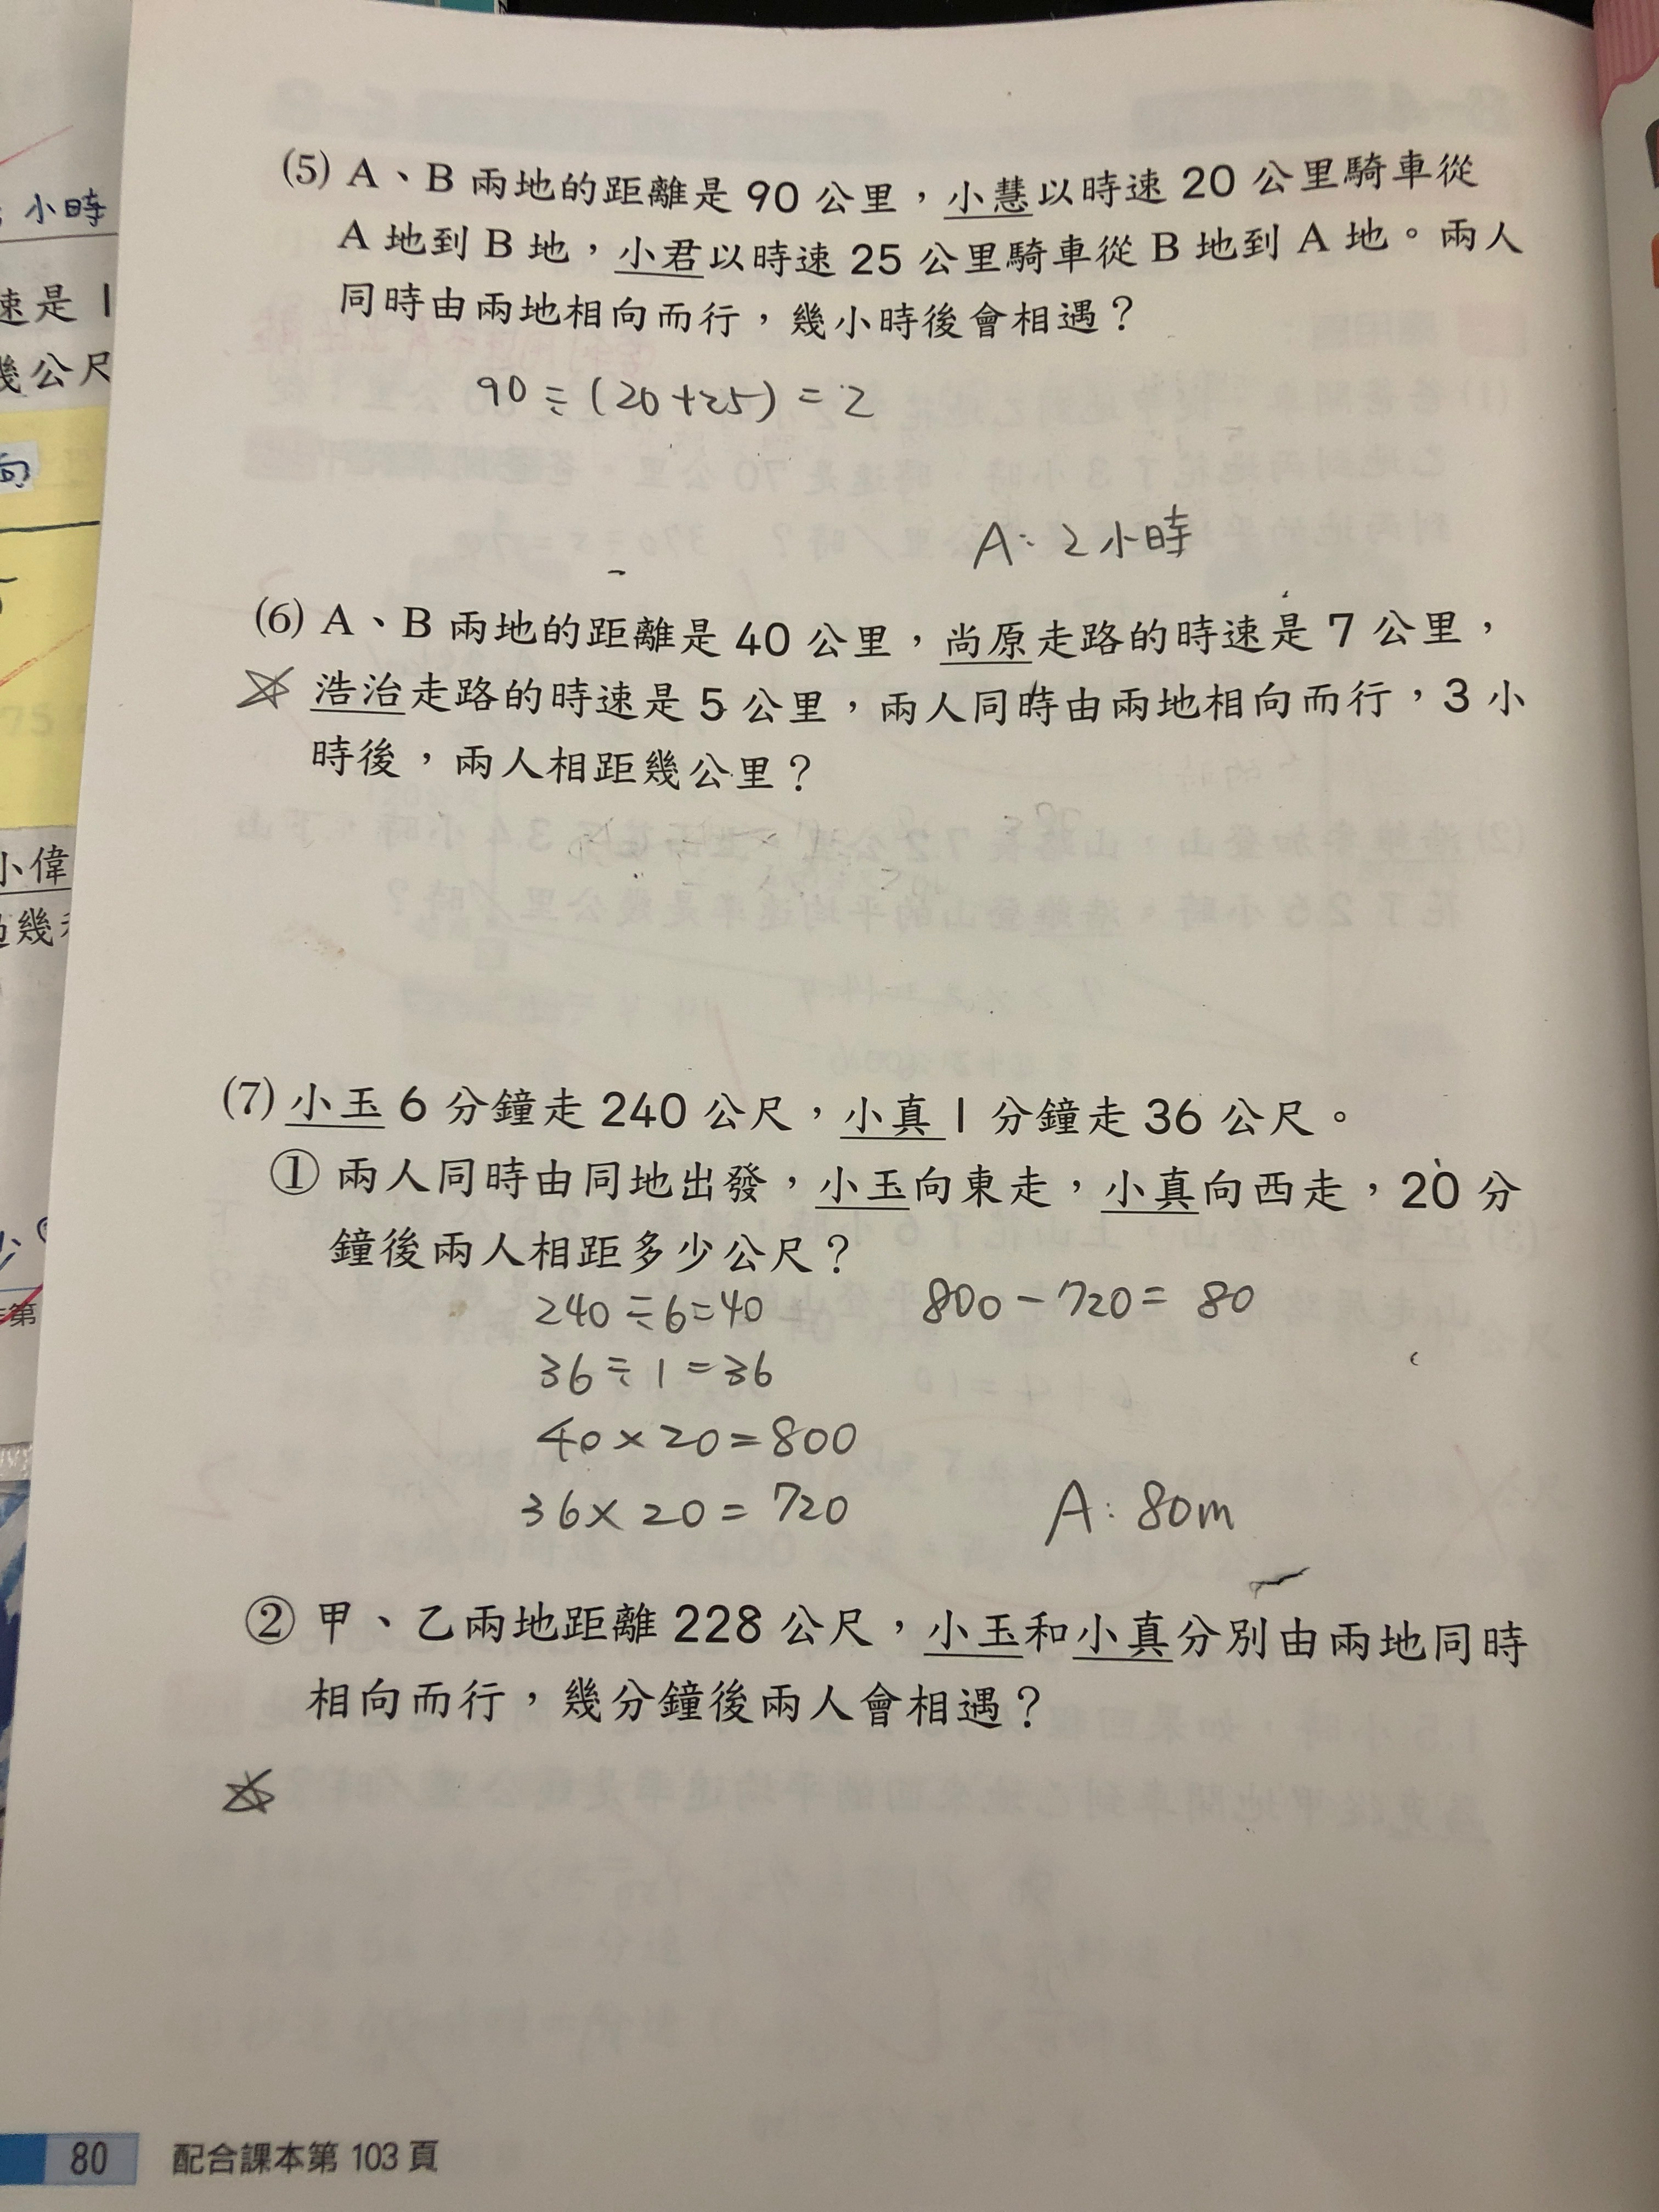 (5) A、B 兩地的距離是 90 公里，小慧以時速 20 公里騎車從
A 地到 B 地，小君以時速 25 公里騎車從 B 地到 A 地。兩人
同時由兩地相向而行，幾小時後會相遇？
90 ÷ (20+25) = 2
A: 2 小時
(6) A、B 兩地的距離是 40 公里，尚原走路的時速是 7 公里，
浩治走路的時速是 5 公里，兩人同時由兩地相向而行，3 小
時後，兩人相距幾公里？
(7) 小玉 6 分鐘走 240 公尺，小真 1 分鐘走 36 公尺。
① 兩人同時由同地出發，小玉向東走，小真向西走，20 分
鐘後兩人相距多少公尺？
240 ÷ 6 = 40
800 - 720 = 80
36 ÷ 1 = 36
40 × 20 = 800
36 × 20 = 720
A: 80m
② 甲、乙兩地距離 228 公尺，小玉和小真分別由兩地同時
相向而行，幾分鐘後兩人會相遇？
80 配合課本第 103 頁
小時
速是 1
幾公尺
向
小偉
幾
第